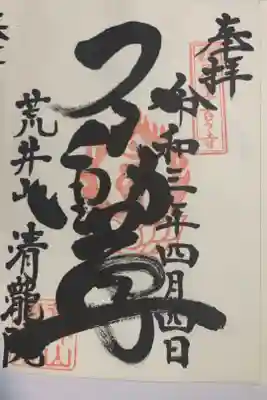 奉拝
令和三年四月四日
不動尊
荒井山
清瀧院